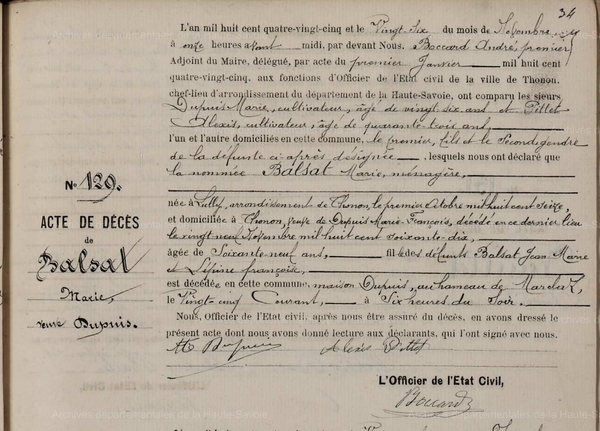 34
L'an mil huit cent quatre-vingt-cinq et le Vingt Six du mois de Novembre
à onze heures avant midi, par devant Nous, Boccard André, premier
Adjoint du Maire, délégué, par acte du premier Janvier mil huit cent
quatre-vingt-cinq, aux fonctions d'Officier de l'Etat civil de la ville de Thonon,
chef-lieu d'arrondissement du département de la Haute-Savoie, ont comparu les sieurs
Dupuis Marie, cultivateur, âgé de vingt six ans et Pillet
Alexis, cultivateur, âgé de quarante trois ans,
l'un et l'autre domiciliés en cette commune, le premier, fils et le Second gendre
de la défunte ci-après désignée, lesquels nous ont déclaré que
la nommée Balsat Marie, ménagère,
née à Lully, arrondissement de Thonon, le premier Octobre mil huit cent seize,
et domiciliée à Thonon, veuve de Dupuis Marie-François, décédé en ce dernier lieu
le vingt neuf Novembre mil huit cent soixante-dix,
âgée de Soixante-neuf ans, fille des défunts Balsat Jean Marie
et françoise,
est décédée en cette commune, maison Dupuis, au hameau de Marclaz,
le Vingt cinq Courant, à Six heures du Soir.
Nous, Officier de l'Etat civil, après nous être assuré du décès, en avons dressé le
présent acte dont nous avons donné lecture aux déclarants, qui l'ont signé avec nous.
Dupuis Alexis Pillet
L'Officier de l'Etat Civil,
Boccard
N° 129.
ACTE DE DÉCÈS
de
Balsat
Marie
veuve Dupuis.
Archives départementales de la Haute-Savoie